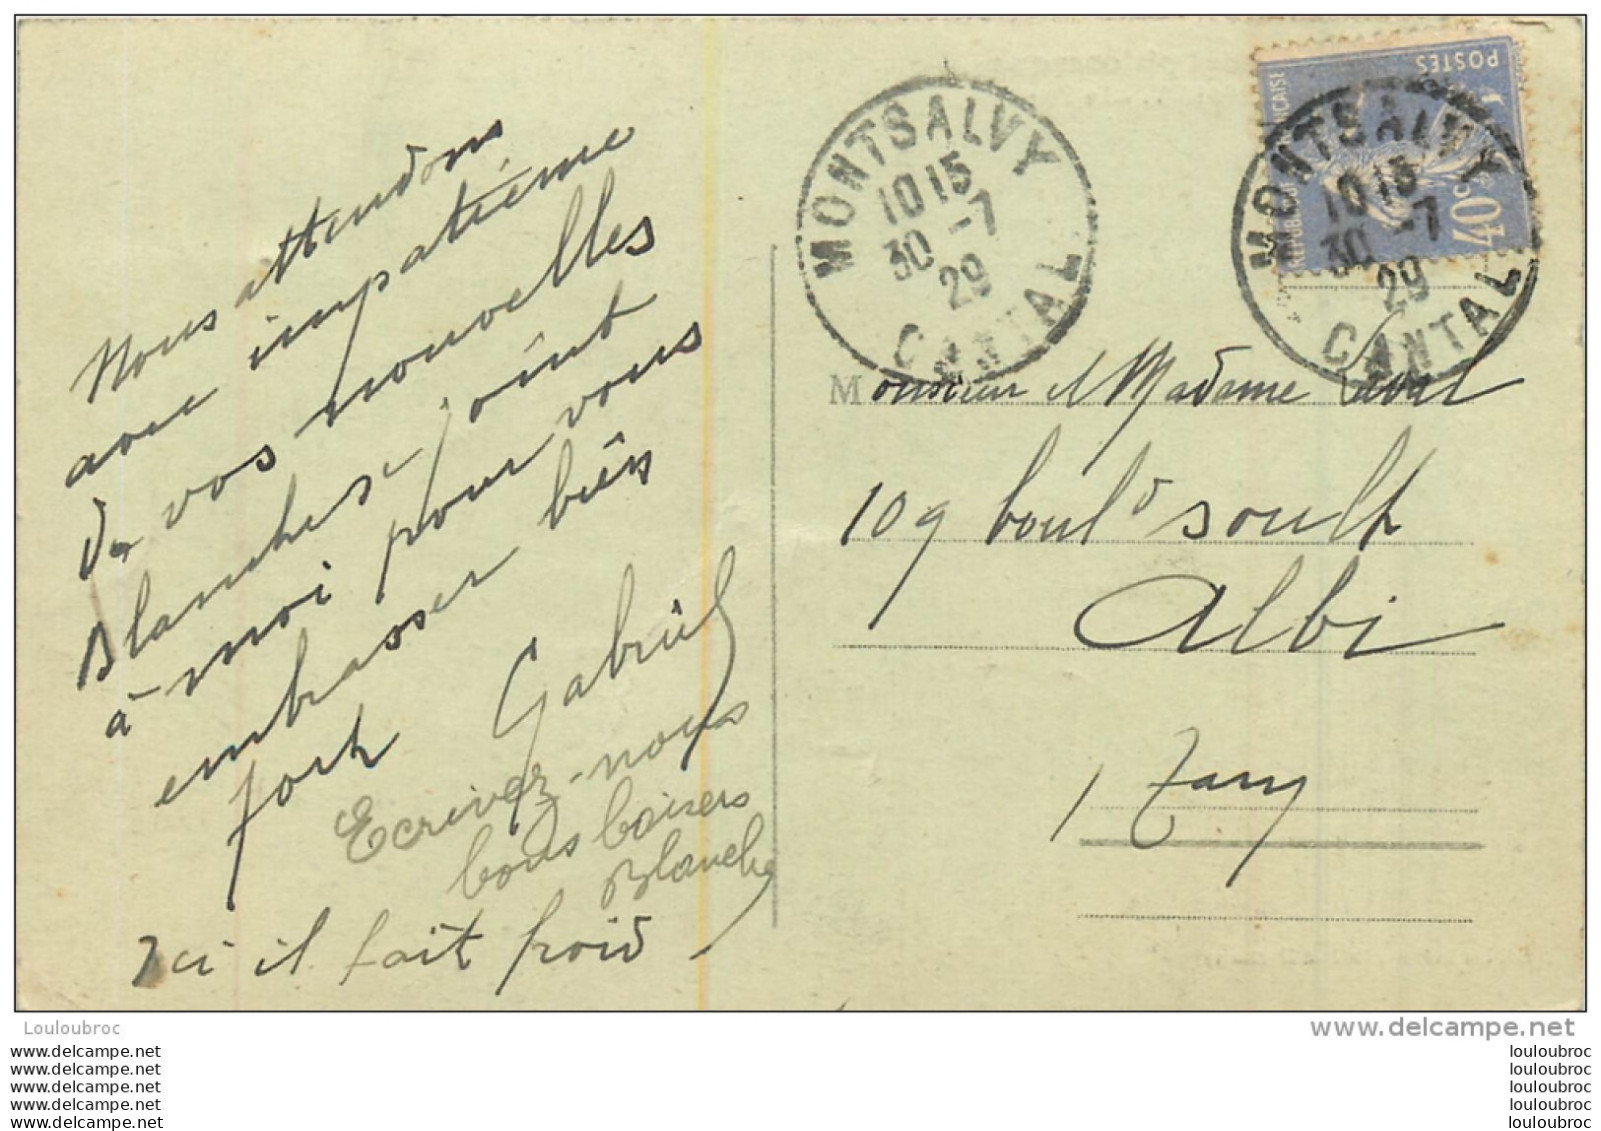 Nous attendons
avec impatiente
De vos nouvelles
Blanche se joint
à moi pour vous
embrasser bien
fort Gabriel
Ecrivez-nous
bons baisers
Blanche
Ici il fait froid
MONTSALVY
10 15
30 -7
29
CANTAL
POSTES
40c
MONTSALVY
10 15
30 -7
29
CANTAL
Monsieur et Madame
109 boul d soult
Albi
Tarn
Louloubroc
www.delcampe.net
www.delcampe.net
www.delcampe.net
www.delcampe.net
www.delcampe.net
www.delcampe.net
louloubroc
louloubroc
louloubroc
louloubroc
louloubroc